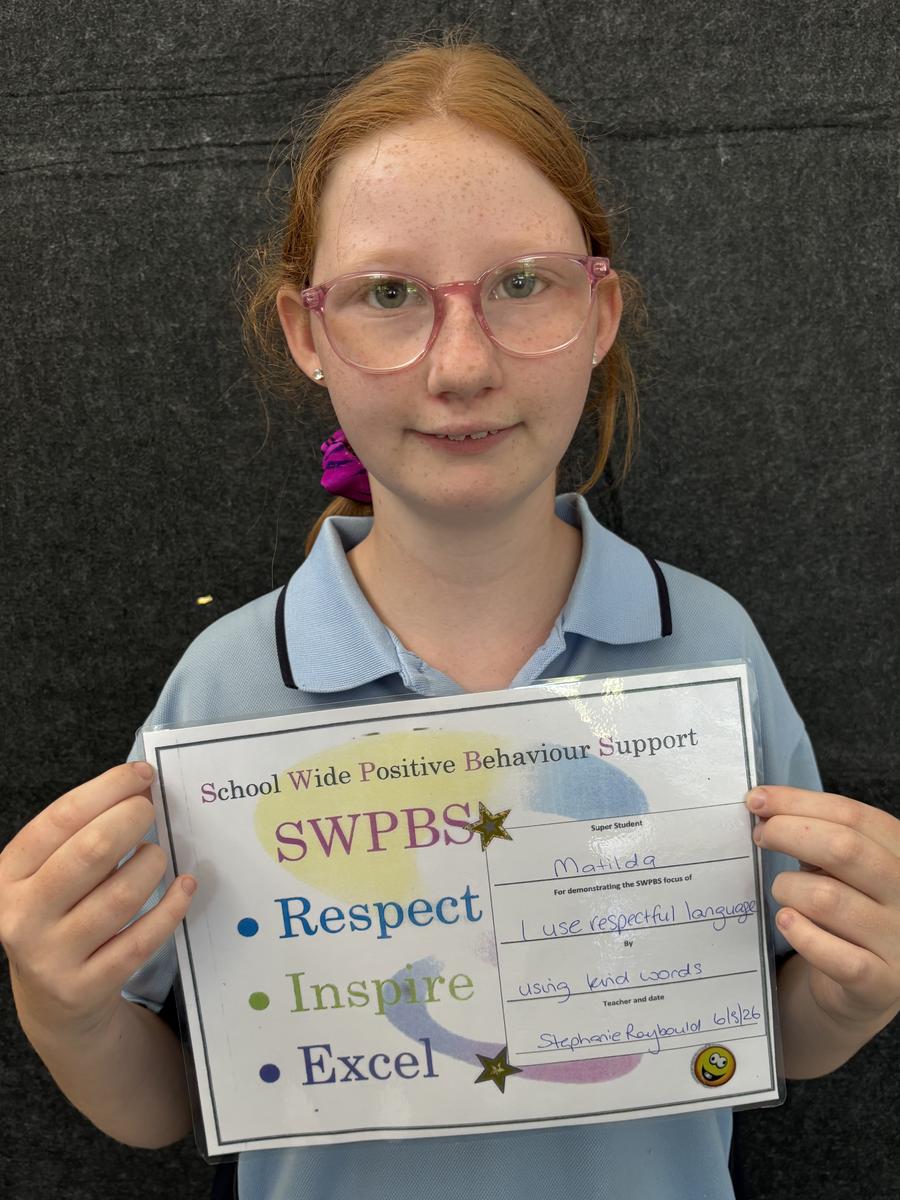 School Wide Positive Behaviour Support
SWPBS
• Respect
• Inspire
• Excel
Super Student
Matilda
For demonstrating the SWPBS focus of
I use respectful language
By
using kind words
Teacher and date
Stephanie Raybould 6/3/26